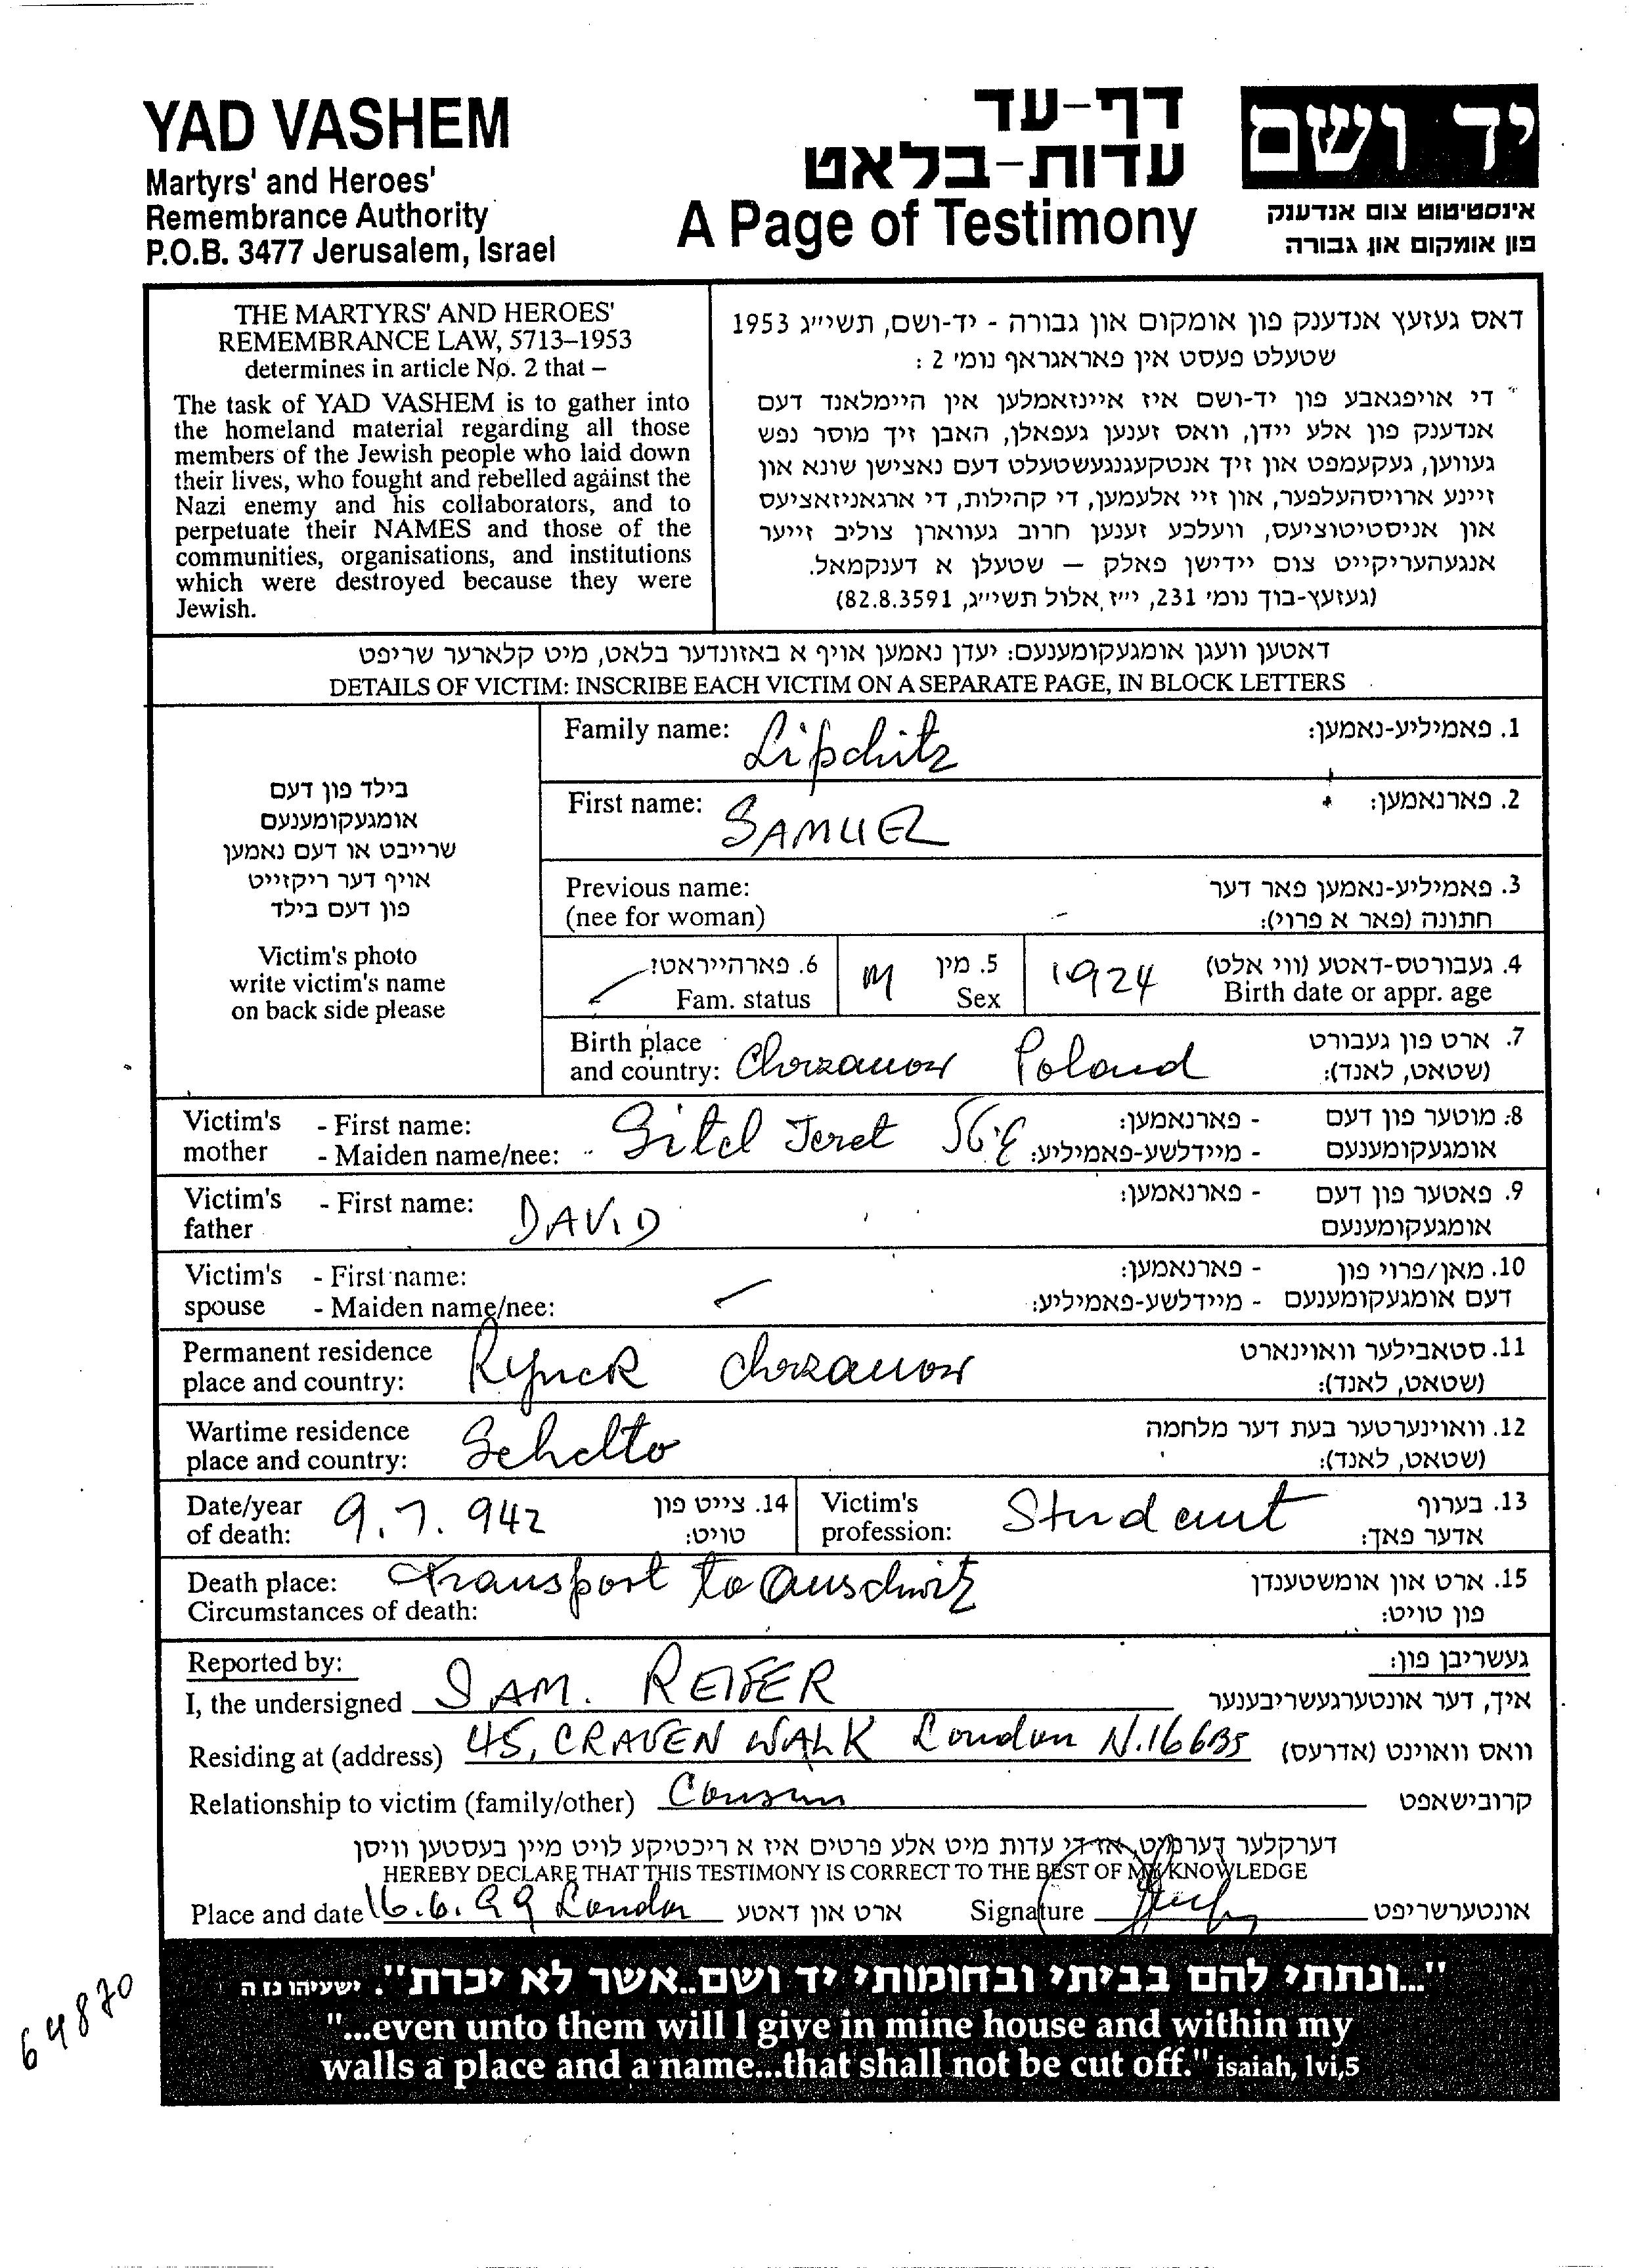 YAD VASHEM
Martyrs' and Heroes'
Remembrance Authority
P.O.B. 3477 Jerusalem, Israel
דף-עד
עדות-בלאט
A Page of Testimony
יד ושם
אינסטיטוט צום אנדענק
פון אומקום און גבורה
THE MARTYRS' AND HEROES'
REMEMBRANCE LAW, 5713–1953
determines in article No. 2 that –
The task of YAD VASHEM is to gather into
the homeland material regarding all those
members of the Jewish people who laid down
their lives, who fought and rebelled against the
Nazi enemy and his collaborators, and to
perpetuate their NAMES and those of the
communities, organisations, and institutions
which were destroyed because they were
Jewish.
דאס געזעץ אנדענק פון אומקום און גבורה - יד-ושם, תשי״ג 1953
שטעלט פעסט אין פאראגראף נומ׳ 2 :
" די אויפגאבע פון יד-ושם איז איינזאמלען אין היימלאנד דעם
אנדענק פון אלע יידן, וואס זענען געפאלן, האבן זיך מוסר נפש
געווען, געקעמפט און זיך אנטקעגנגעשטעלט דעם נאצישן שונא און
זיינע ארויסהעלפער, און זיי אלעמען, די קהילות, די ארגאניזאציעס
און אניסטיטוציעס, וועלכע זענען חרוב געווארן צוליב זייער
אנגעהעריקייט צום יידישן פאלק — שטעלן א דענקמאל.
(געזעץ-בוך נומ׳ 231, י״ז אלול תשי״ג, 82.8.3591)
דאטען וועגן אומגעקומענעם: יעדן נאמען אויף א באזונדער בלאט, מיט קלארער שריפט
DETAILS OF VICTIM: INSCRIBE EACH VICTIM ON A SEPARATE PAGE, IN BLOCK LETTERS
בילד פון דעם
אומגעקומענעם
שרייבט או דעם נאמען
אויף דער ריקזייט
פון דעם בילד
Victim's photo
write victim's name
on back side please
Family name: Lipchitz 1. פאמיליע-נאמען:
First name: SAMUEL 2. פארנאמען:
Previous name: 3. פאמיליע-נאמען פאר דער
(nee for woman) - חתונה (פאר א פרוי):
6. פארהייראט: M 5. מין 1924 4. געבורטס-דאטע (ווי אלט)
Fam. status Sex Birth date or appr. age
Birth place 7. ארט פון געבורט
and country: Chrzanow Poland (שטאט, לאנד):
Victim's - First name: Gitel Jeret - פארנאמען: 8. מוטער פון דעם
mother - Maiden name/nee: - מיידלשע-פאמיליע: אומגעקומענעם
Victim's - First name: DAVID - פארנאמען: 9. פאטער פון דעם
father אומגעקומענעם
Victim's - First name: - פארנאמען: 10. מאן/פרוי פון
spouse - Maiden name/nee: - מיידלשע-פאמיליע: דעם אומגעקומענעם
Permanent residence 11. סטאבילער וואוינארט
place and country: Rynek Chrzanow (שטאט, לאנד):
Wartime residence 12. וואוינערטער בעת דער מלחמה
place and country: (שטאט, לאנד):
Date/year 9.7.942 14. צייט פון Victim's Student 13. בערוף
of death: טויט: profession: אדער פאך:
Death place: transport to Auschwitz 15. ארט און אומשטענדן
Circumstances of death: פון טויט:
Reported by: געשריבן פון:
I, the undersigned SAM. REIFER איך, דער אונטערגעשריבענער
Residing at (address) 45, CRAVEN WALK London N.16 6BS וואס וואוינט (אדרעס)
Relationship to victim (family/other) Cousin קרובישאפט
דערקלער דערמיט, אז די עדות מיט אלע פרטים איז א ריכטיקע לויט מיין בעסטען וויסן
HEREBY DECLARE THAT THIS TESTIMONY IS CORRECT TO THE BEST OF MY KNOWLEDGE
Place and date 16.6.99 London ארט און דאטע Signature אונטערשריפט
"...ונתתי להם בביתי ובחומותי יד ושם..אשר לא יכרת". ישעיהו נו ה
"...even unto them will I give in mine house and within my
walls a place and a name...that shall not be cut off." isaiah, lvi,5
64870